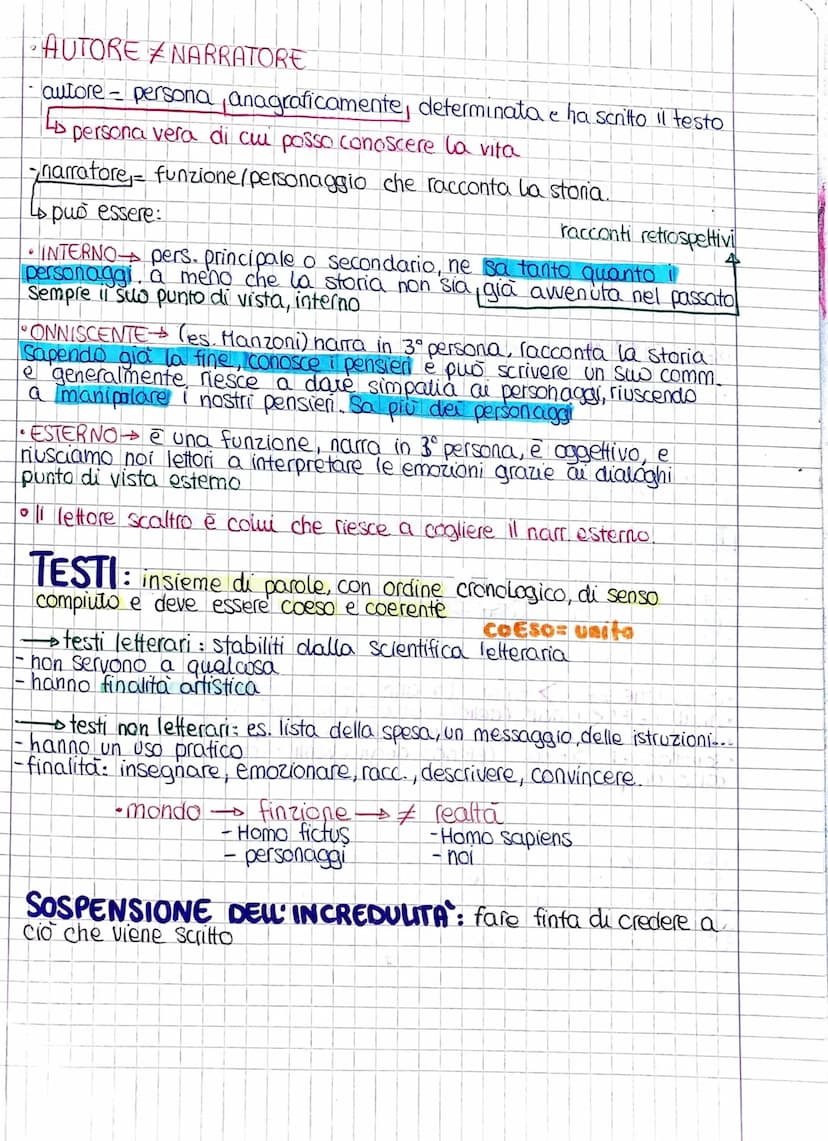 · AUTORE ≠ NARRATORE
· autore = persona anagraficamente determinata e ha scritto il testo
↳ persona vera di cui posso conoscere la vita
- narratore = funzione/personaggio che racconta la storia.
↳ può essere:
racconti retrospettivi
· INTERNO → pers. principale o secondario, ne sa tanto quanto i
personaggi, a meno che la storia non sia già avvenuta nel passato
Sempre il suo punto di vista, interno
· ONNISCENTE → (es. Manzoni) narra in 3° persona, racconta la storia
sapendo già la fine, conosce i pensieri e può scrivere un suo comm.
e generalmente riesce a dare simpatia ai personaggi, riuscendo
a manipolare i nostri pensieri. Sa più dei personaggi
· ESTERNO → è una funzione, narra in 3° persona, è oggettivo, e
riusciamo noi lettori a interpretare le emozioni grazie ai dialoghi
punto di vista esterno
· Il lettore scaltro è colui che riesce a cogliere il narr. esterno.
TESTI: insieme di parole, con ordine cronologico, di senso
compiuto e deve essere coeso e coerente
COESO = unito
→ testi letterari: stabiliti dalla scientifica letteraria
- non servono a qualcosa
- hanno finalità artistica
→ testi non letterari: es. lista della spesa, un messaggio, delle istruzioni...
- hanno un uso pratico
- finalità: insegnare, emozionare, racc., descrivere, convincere.
· mondo → finzione → ≠ realtà
- Homo fictus - Homo sapiens
- personaggi - noi
SOSPENSIONE DELL'INCREDULITÀ: fare finta di credere a
ciò che viene scritto